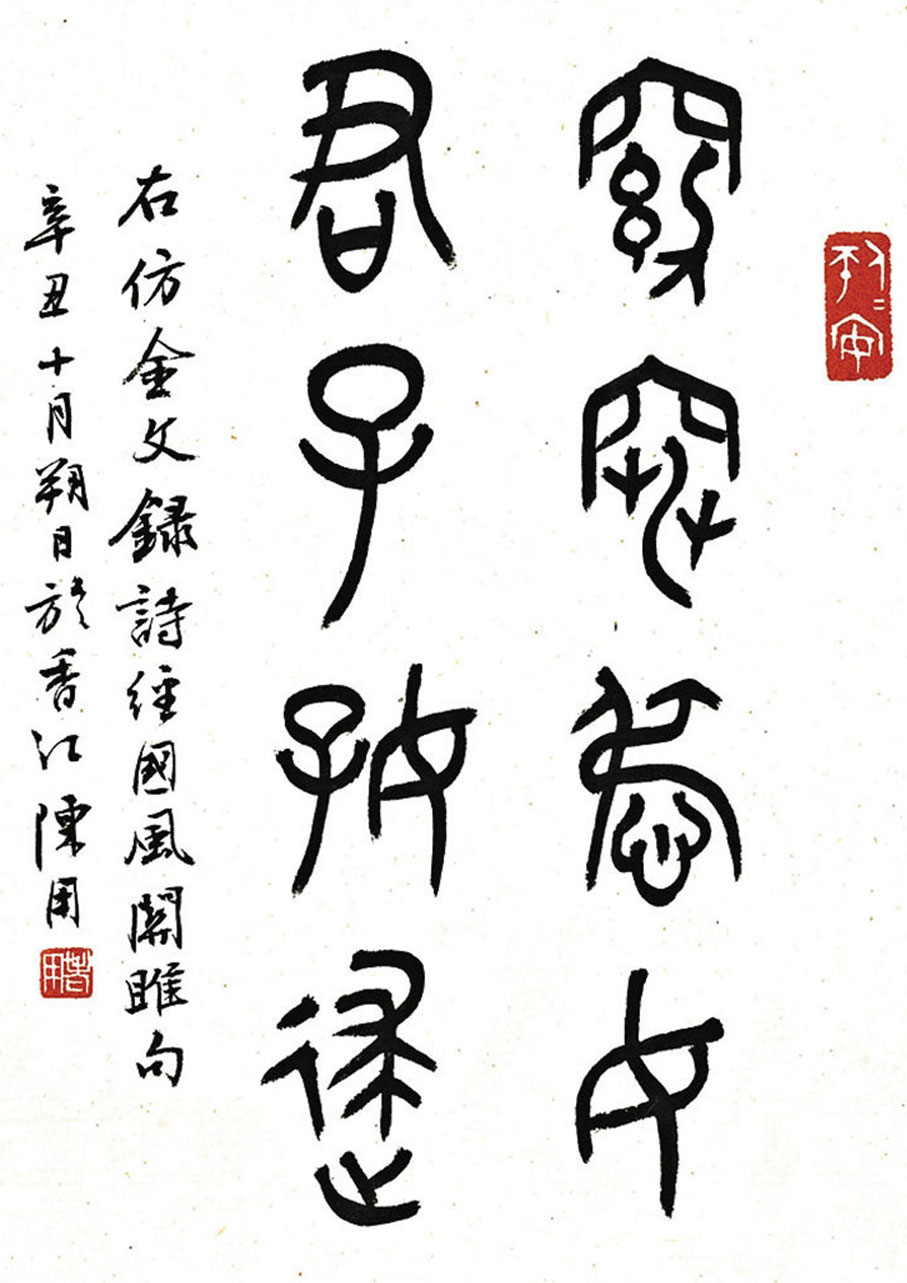 窈窕淑女
君子好逑
右仿金文錄詩經國風關雎句
辛丑十月朔日於香江陳用